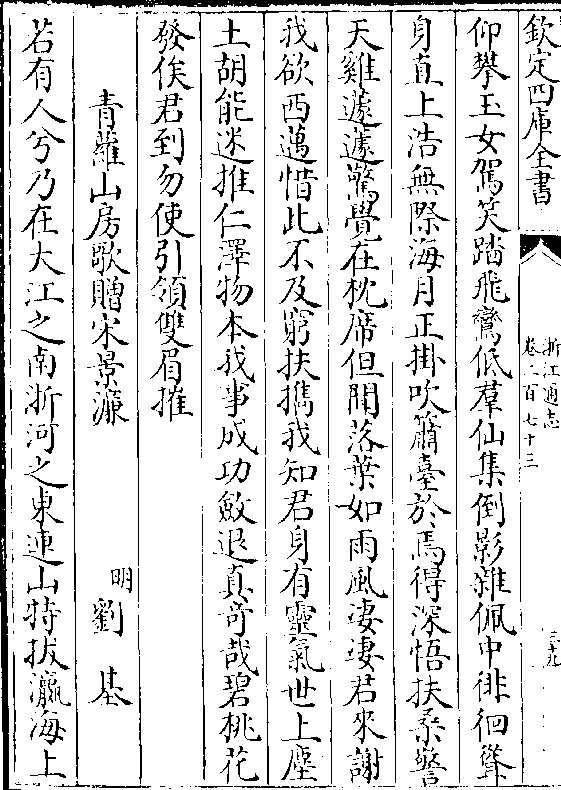 欽定四庫全書
浙江通志
卷二百七十三
三十九
仰攀玉女駕笑踏飛鸞低羣仙集倒影雜佩中徘徊聳
身直上浩無際海月正掛吹簫臺於焉得深悟扶桑警
天雞蘧蘧驚覺在枕席但聞落葉如雨風淒淒君來謝
我欲西邁惜此不及窮扶攜我知君身有靈氣世上塵
土胡能迷推仁澤物本我事成功斂退真奇哉碧桃花
發俟君到勿使引領雙眉摧
青蘿山房歌贈宋景濂
明劉基
若有人兮乃在大江之南浙河之東連山特拔瀛海上